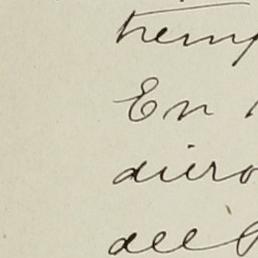 tremp
En
diero
all